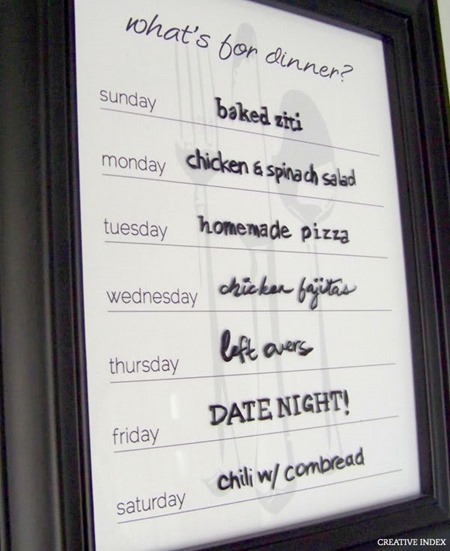 what's for dinner?
sunday baked ziti
monday chicken & spinach salad
tuesday homemade pizza
wednesday chicken fajitas
thursday left overs
friday DATE NIGHT!
saturday chili w/ cornbread
CREATIVE INDEX